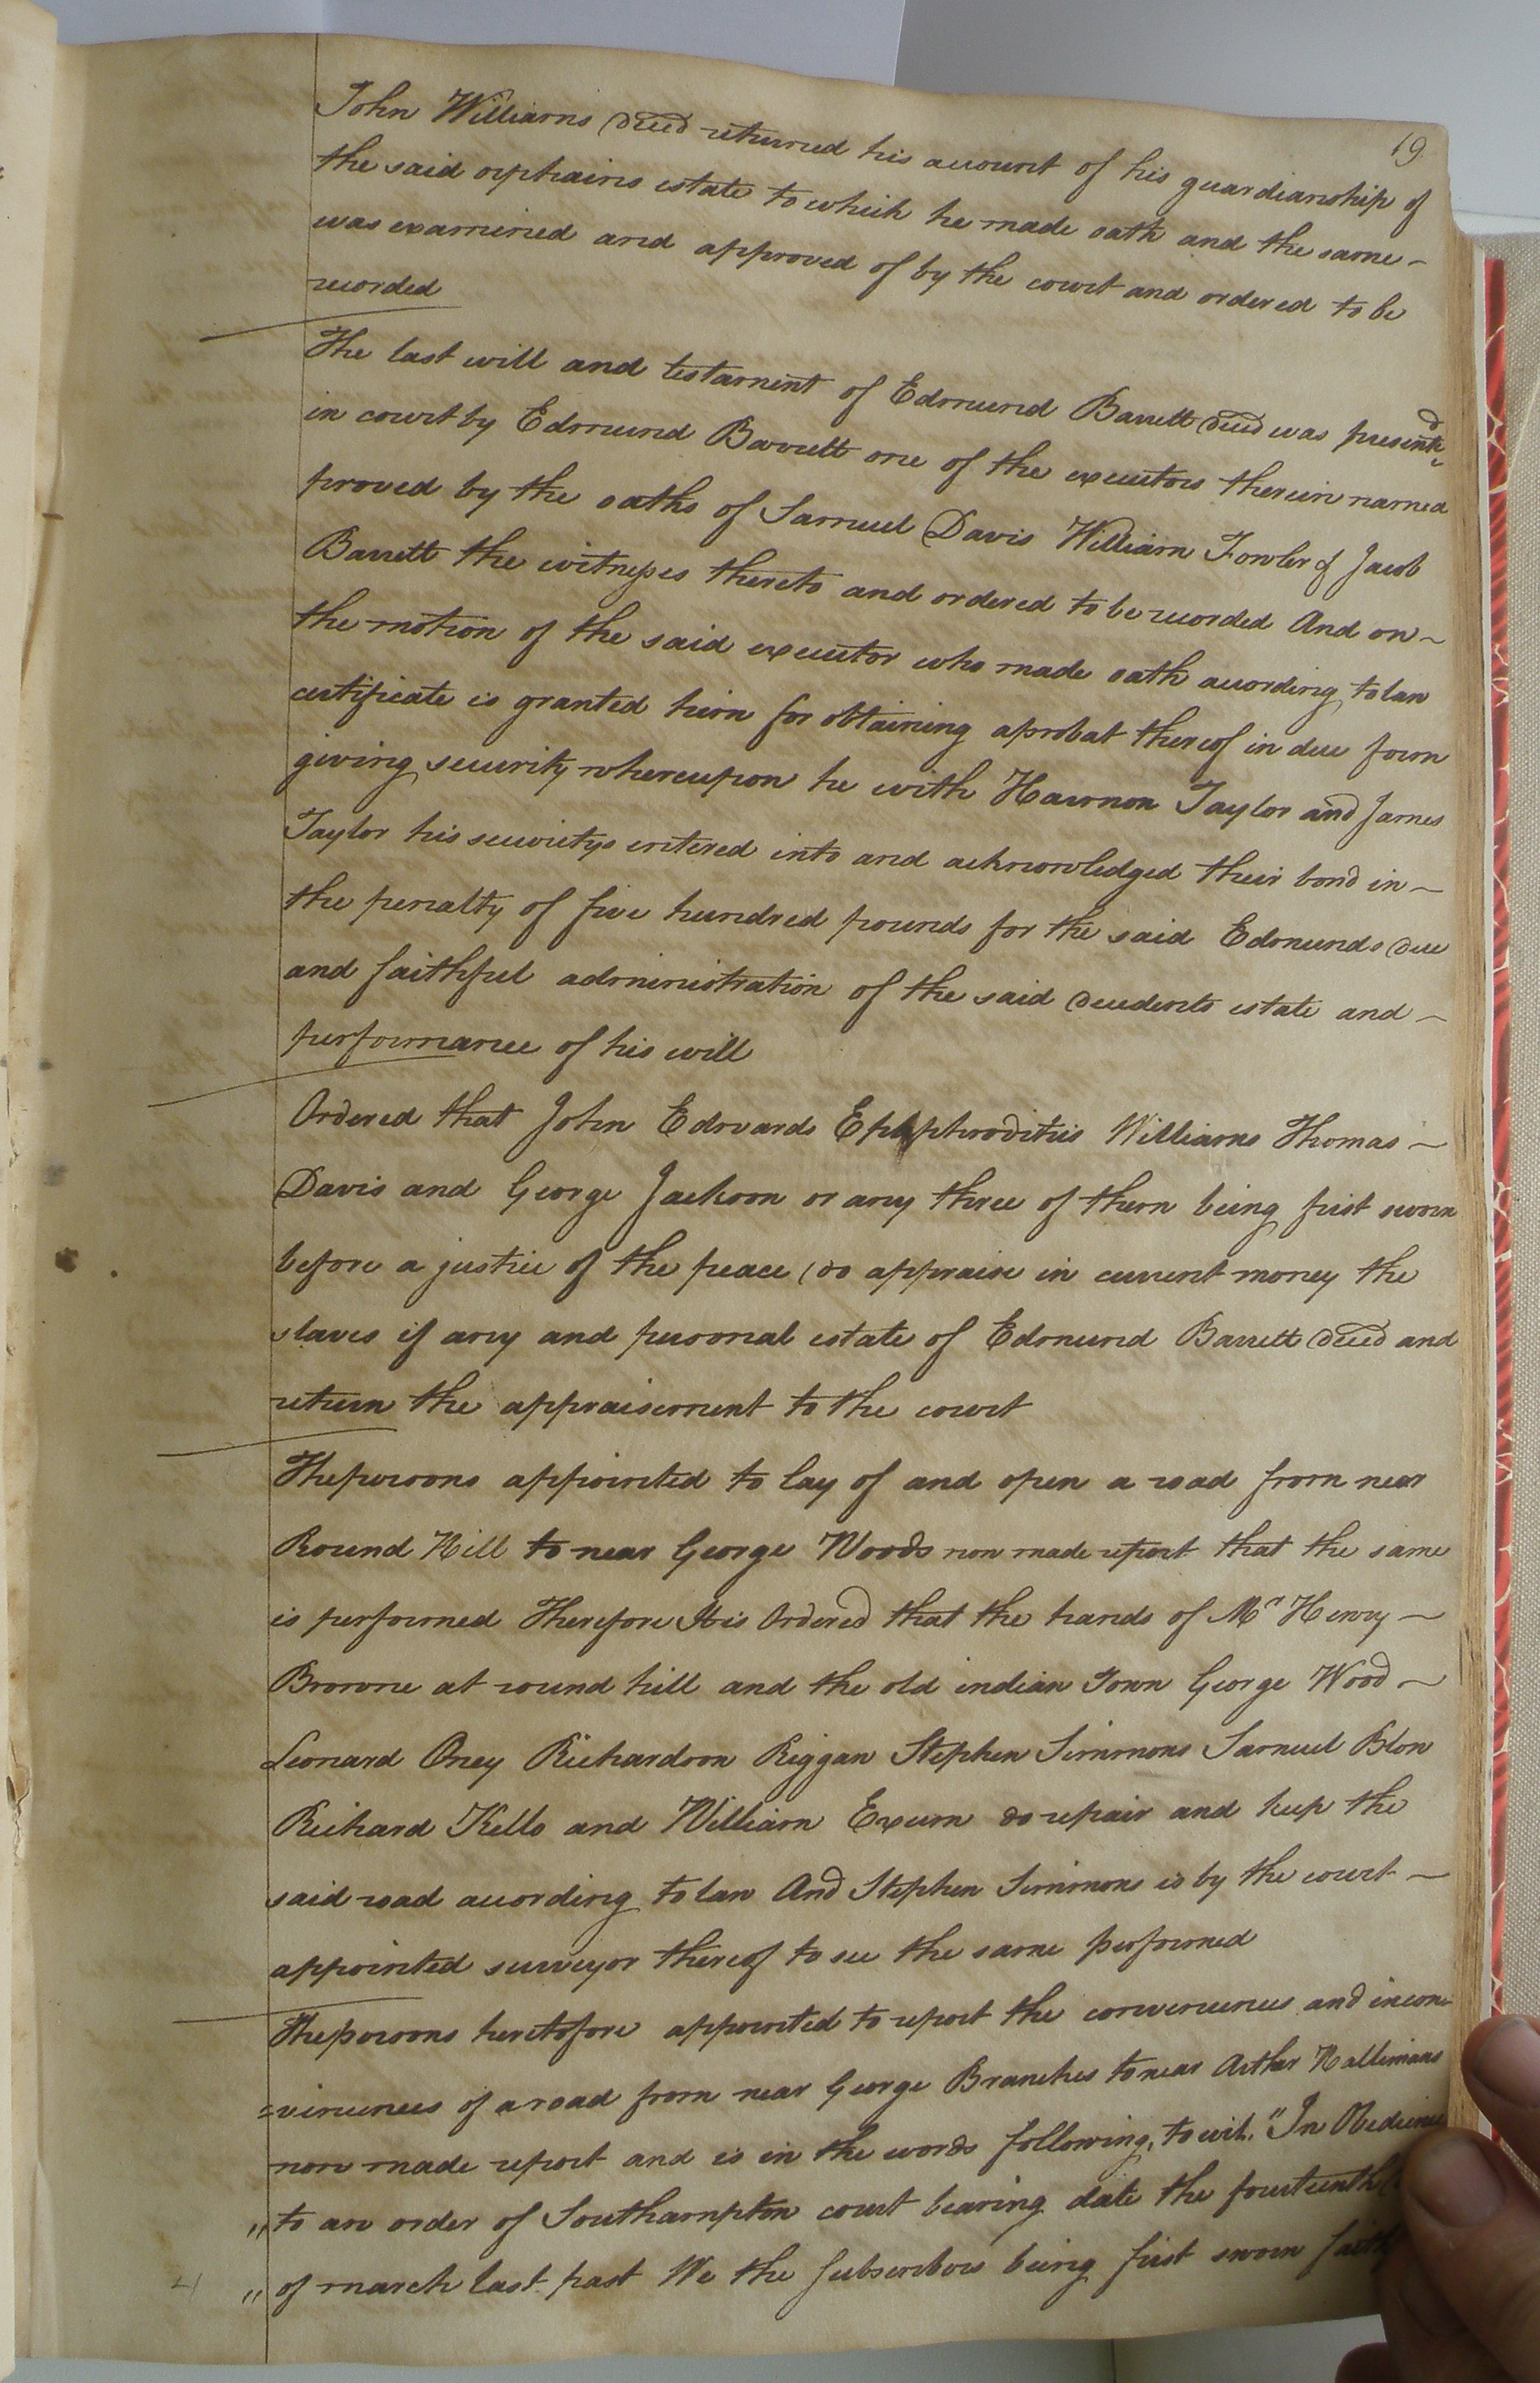 19
John Williams decd returned his account of his guardianship of
the said orphains estate to which he made oath and the same
was examined and approved of by the court and ordered to be
recorded
The last will and testament of Edmund Barrett decd was presentd
in court by Edmund Barrett one of the executors therein named
proved by the oaths of Samuel Davis William Fowler & Jacob
Barrett the witnesses thereto and ordered to be recorded And on
the motion of the said executor who made oath according to law
certificate is granted him for obtaining a probat thereof in due form
giving security whereupon he with Harmon Taylor and James
Taylor his securitys entered into and acknowledged their bond in
the penalty of five hundred pounds for the said Edmunds due
and faithful administration of the said decedents estate and
performance of his will
Ordered that John Edwards Epaphroditus Williams Thomas
Davis and George Jackson or any three of them being first sworn
before a justice of the peace do appraise in current money the
slaves if any and personal estate of Edmund Barrett decd and
return the appraisement to the court
The persons appointed to lay of and open a road from near
Round Hill to near George Woods now made report that the same
is performed Therefore It is Ordered that the hands of Mr Henry
Browne at round hill and the old indian Town George Wood
Leonard Oney Richardson Riggan Stephen Simmons Samuel Blow
Richard Kello and William Exum do repair and keep the
said road according to law And Stephen Simmons is by the court
appointed surveyor thereof to see the same performed
The persons heretofore appointed to report the conveniences and incon
=veniences of a road from near George Branches to near Arthur
now made report and is in the words following, to wit. "In Obedience
" to an order of Southampton court bearing date the fourteenth
" of march last past We the subscribers being first sworn